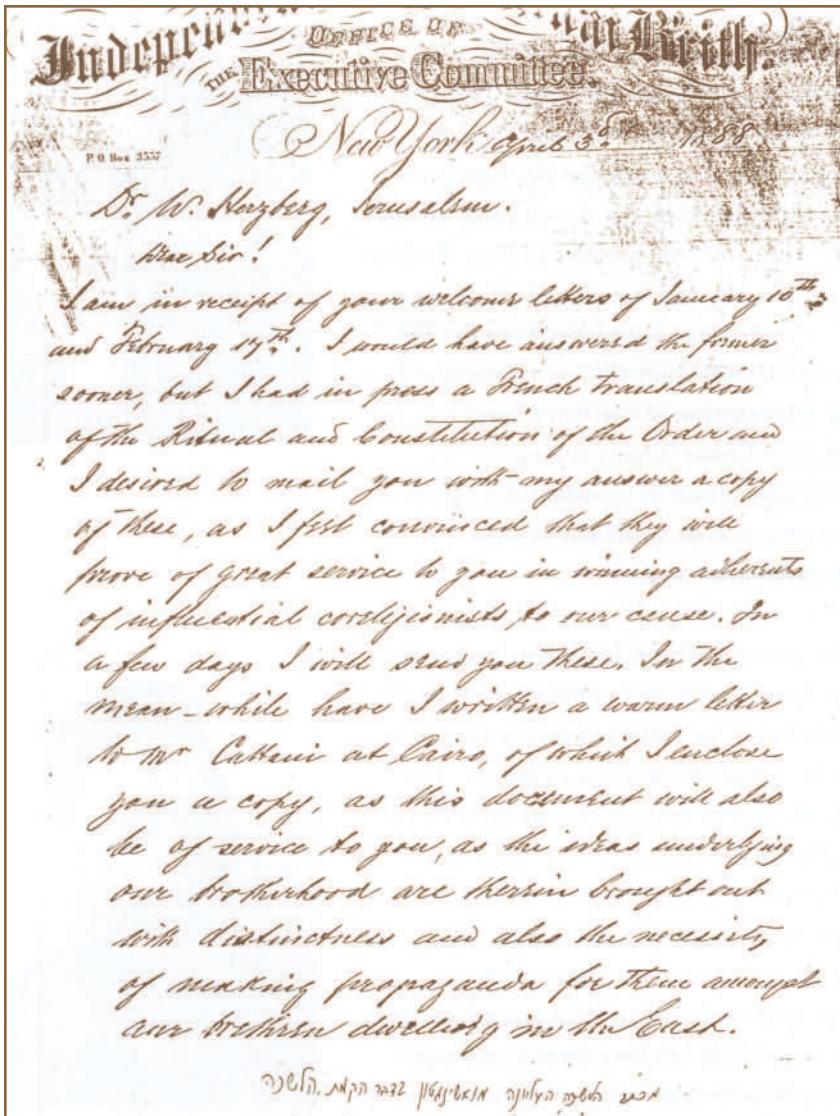 OFFICE OF
THE
Executive Committee.
P. O. Box 3557
New York April 3d 1888
Dr. W. Herzberg, Jerusalem.
Dear Sir!
I am in receipt of your welcome letters of January 10th
and February 17th. I would have answered the former
sooner, but I had in press a French translation
of the Ritual and Constitution of the Order and
I desired to mail you with my answer a copy
of these, as I feel convinced that they will
prove of great service to you in winning adherents
of influential coreligionists to our cause. In
a few days I will send you these. In the
mean-while have I written a warm letter
to Mr Cattaui at Cairo, of which I enclose
you a copy, as this document will also
be of service to you, as the ideas underlying
our brotherhood are therein brought out
with distinctness and also the necessity
of making propaganda for them amongst
our brethren dwelling in the East.
מכתב הלשכה העליונה מוושינגטון בדבר הקמת הלשכה